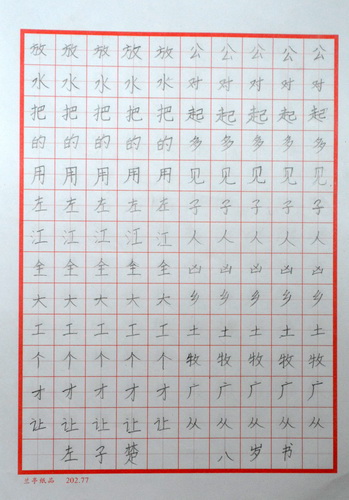 放放放放放公公公公公
水水水水水对对对对对
把把把把把起起起起起
的的的的的多多多多多
用用用用用见见见见见
左左左左左子子子子子
江江江江江人人人人人
全全全全全凶凶凶凶凶
大大大大大乡乡乡乡乡
工工工工工土土土土土
个个个个个牧牧牧牧牧
才才才才才广广广广广
让让让让让从从从从从
左子楚 八岁书
兰亭纸品 202.77